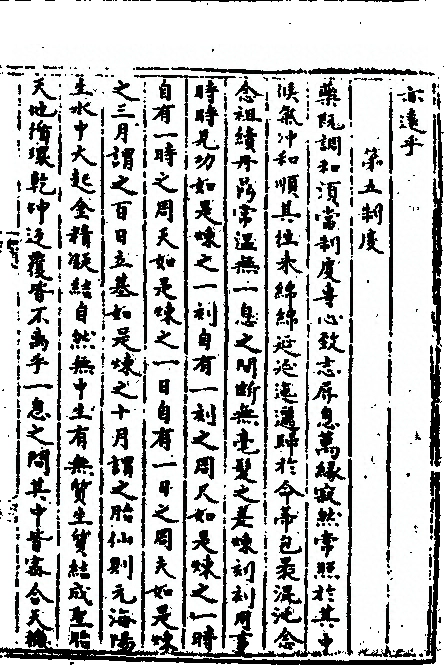 亦遠乎
第五制度
藥既調和須當制度專心致志屏息萬緣寂然常照於其中
候氣冲和順其往来綿綿延延迤邐歸於命蒂包裹混沌念
念相續丹爐常温無一息之間断無毫髮之差煉刻刻用事
時時見功如是煉之一刻自有一刻之周天如是煉之一時
自有一時之周天如是煉之一日自有一日之周天如是煉
之三月謂之百日立基如是煉之十月謂之胎仙則元海陽
生水中火起金精凝結自然無中生有無質生質結成聖胎
天地循環乾坤返覆皆不离乎一息之間其中皆宻合天機